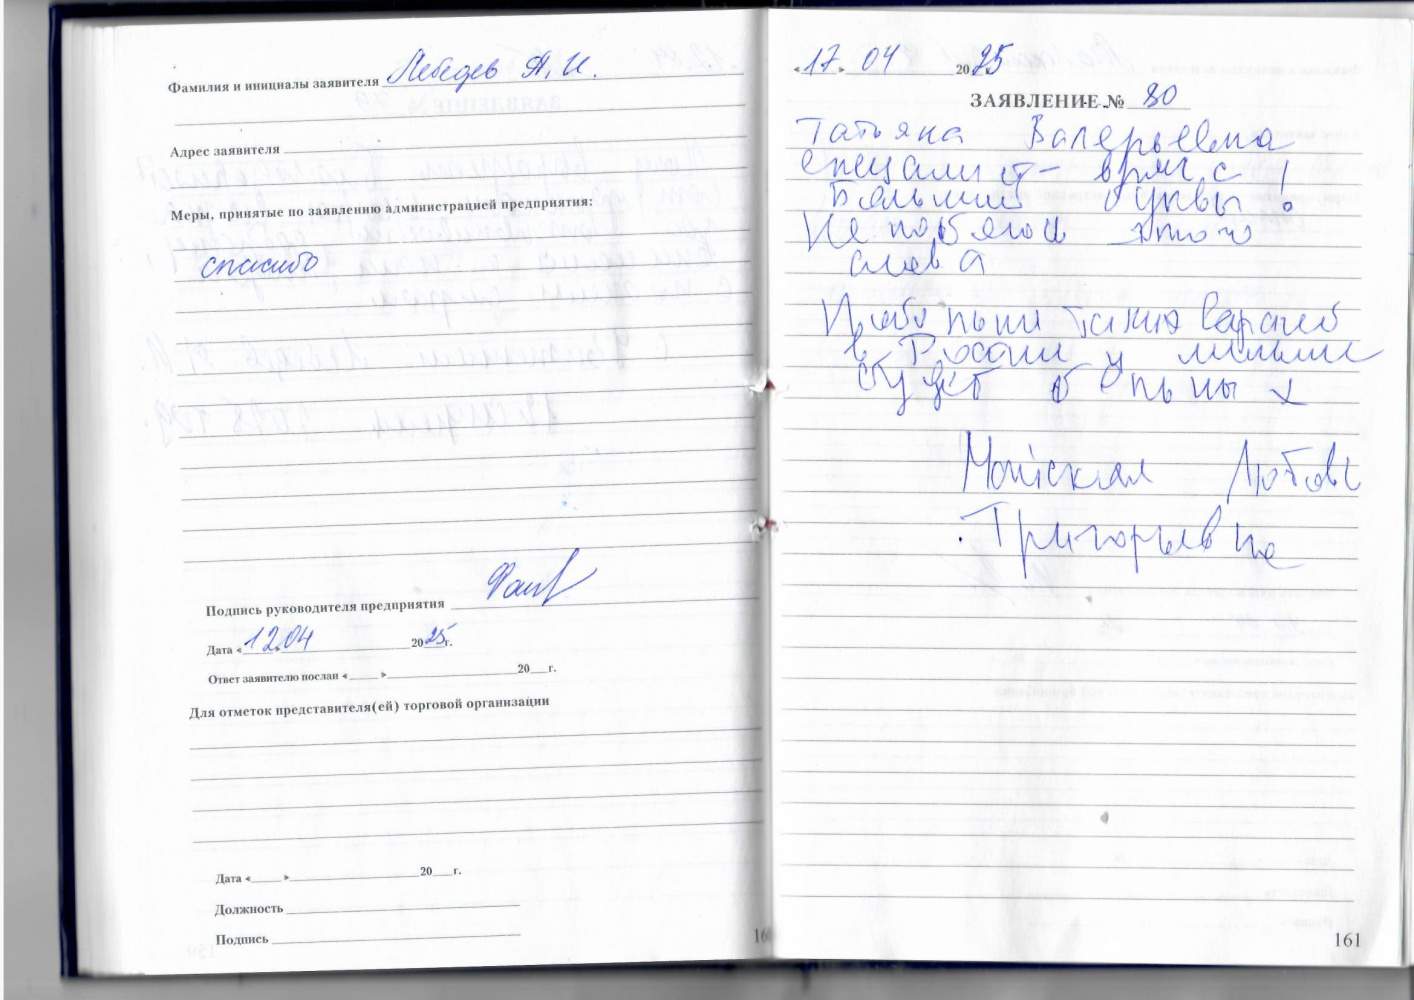 Фамилия и инициалы заявителя Лебедев А. И.
Адрес заявителя
Меры, принятые по заявлению администрацией предприятия:
спасибо
Подпись руководителя предприятия
Дата « 12.04 2025г.
Ответ заявителю послан « » 20 г.
Для отметок представителя(ей) торговой организации
Дата « » 20 г.
Должность
Подпись
160
«17» 04 2025
ЗАЯВЛЕНИЕ № 80
Татьяна Валерьевна
специалист – врач с
Большой буквы!
Не побоюсь этого
слева
Побольше таких варачей
в России и меньше
будет больных
Майская Любовь
Григорьевна
161